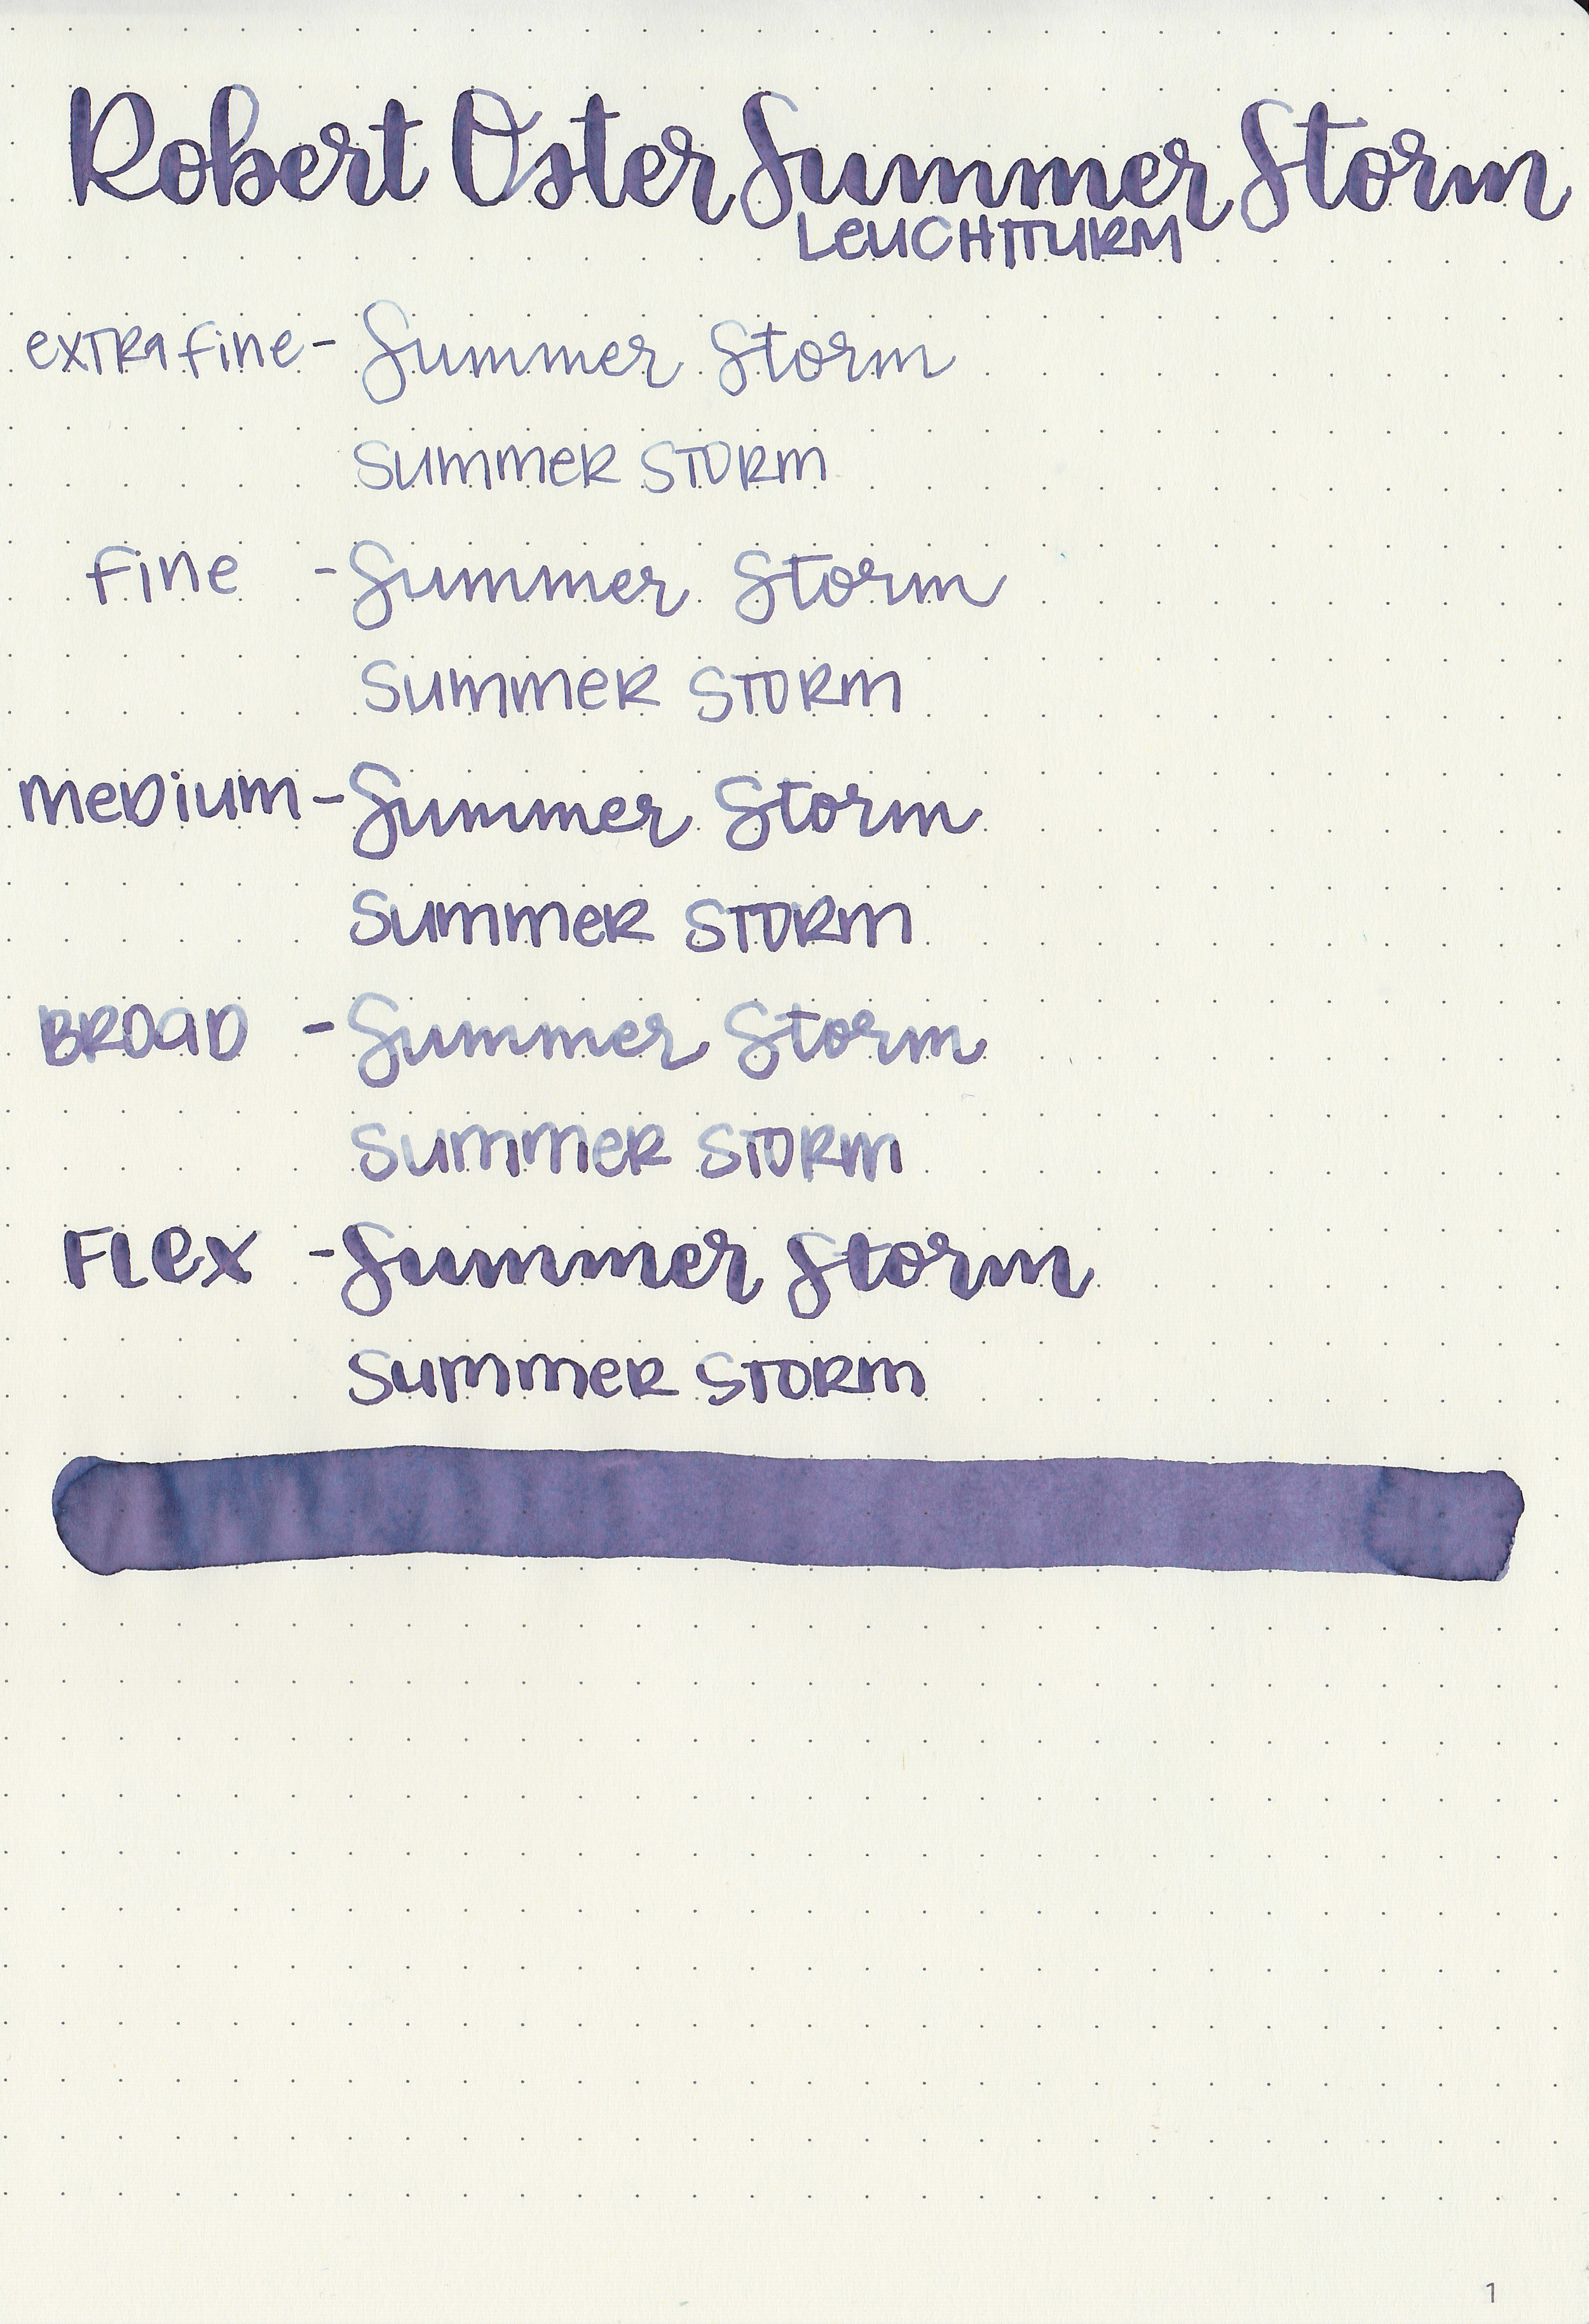 Robert Oster Summer Storm
LEUCHTTURM
extra fine - Summer Storm
Summer Storm
fine - Summer Storm
Summer Storm
medium - Summer Storm
Summer Storm
Broad - Summer Storm
Summer Storm
Flex - Summer Storm
Summer Storm
1